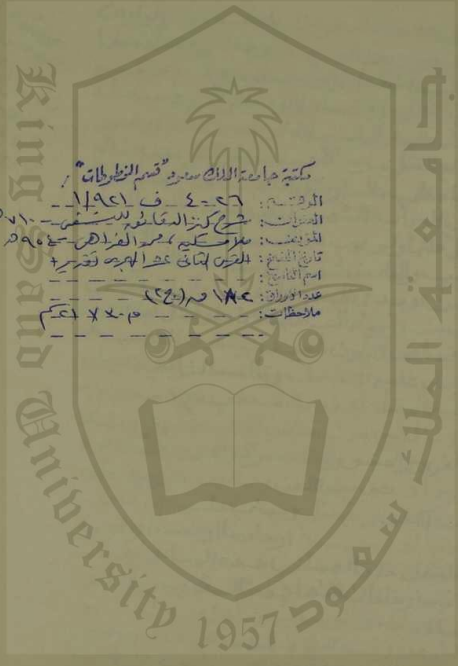 مكتبة جامعة الملك سعود "قسم المخطوطات"
الرقم: ٤٠٢٦ ف ١/٩٢١
العنوان: شرح كنز الدقائق للنسفي - ٧١٠ هـ
المؤلف: ملا مسكين، محمد الفراهي - ٩٥٤ هـ
تاريخ النسخ: القرن الثاني عشر الهجري تقديرا
اسم الناسخ:
عدد الأوراق: ١٨٢
ملاحظات:
King Saud University
جامعة الملك سعود
1957